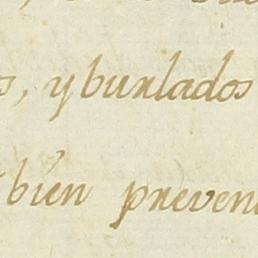 s, y burlados
bien preven